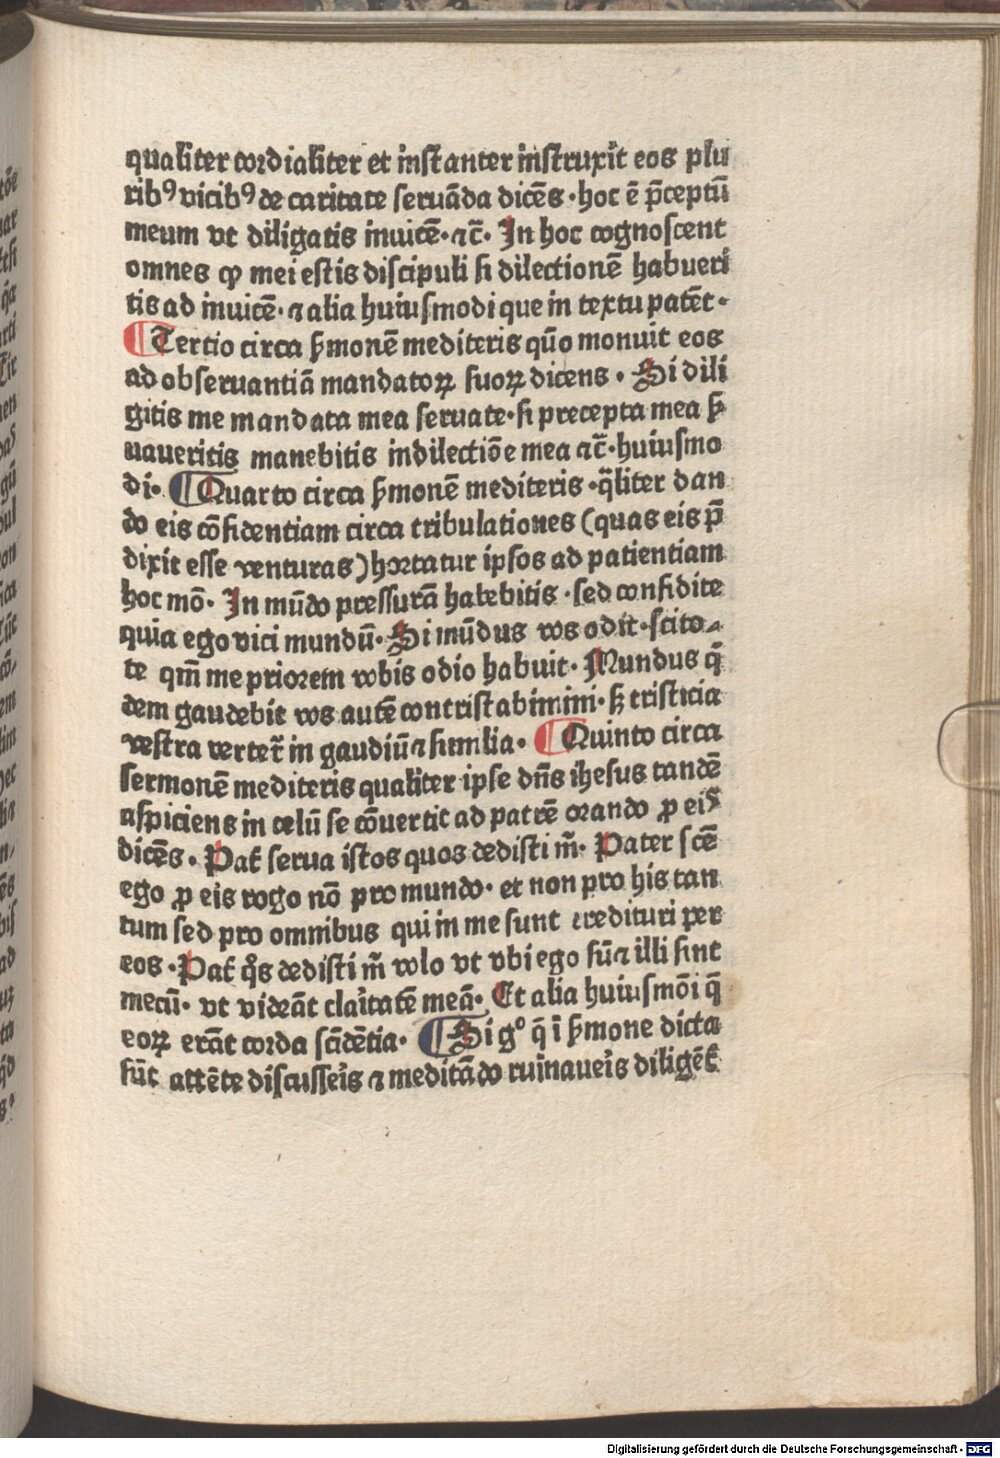 qualiter cordialiter et inſtanter inſtruxit eos plu
ribꝰ vicibꝰ de caritate ſeruāda dicēs · hoc ē p̄ceptū
meum vt diligatis inuicē · ⁊c̄ · In hoc cognoſcent
omnes ꝙ mei eſtis diſcipuli ſi dilectionē habueri
tis ad inuicē · ⁊ alia huiuſmodi que in textu patēt ·
¶ Tertio circa ẜmonē mediteris quō monuit eos
ad obſeruantiā mandatoꝝ ſuoꝝ dicens · Si dili
gitis me mandata mea ſeruate · ſi precepta mea ẜ
uaueritis manebitis in dilectiōe mea ⁊c̄ · huiuſmo
di · ¶ Quarto circa ẜmonē mediteris · q̄liter dan
do eis cōfidentiam circa tribulationes (quas eis p̄
dixit eſſe venturas) hortatur ipſos ad patientiam
hoc mō · In mūdo preſſurā habebitis · ſed confidite
quia ego vici mundū · Si mūdus vos odit · ſcito⸗
te qm̄ me priorem vobis odio habuit · Mundus q̄
dem gaudebit vos autē contriſtabimini · ſꝫ triſticia
veſtra vertet̄ in gaudiū ⁊ ſimilia · ¶ Quinto circa
ſermonē mediteris qualiter ipſe dn̄s iheſus tandē
aſpiciens in celū ſe cōuertit ad patrē orando ꝓ eiſ
dicēs · Pat̄ ſerua iſtos quos dediſti m̄ · Pater ſcē
ego ꝓ eis rogo nō pro mundo · et non pro his tan
tum ſed pro omnibus qui in me ſunt credituri per
eos · Pat̄ q̄s dediſti m̄ volo vt vbi ego ſū ⁊ illi ſint
mecū · vt videāt claritatē meā · Et alia huiuſmōi q̄
eoꝝ erāt corda ſcīdētia · ¶ Si gº q̄ ī ẜmone dicta
ſūt attēte diſcuſſeis ⁊ meditādo ruinaueis diligēt̄
Digitalisierung gefördert durch die Deutsche Forschungsgemeinschaft · DFG